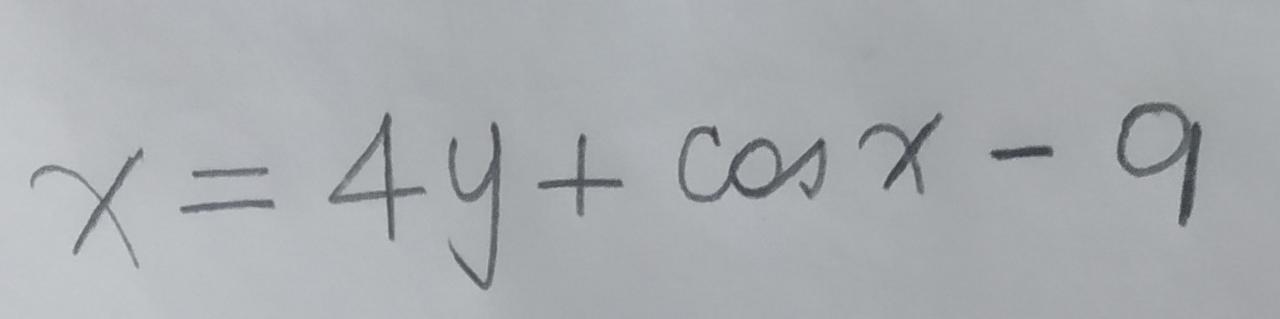 x = 4y + cos x - 9